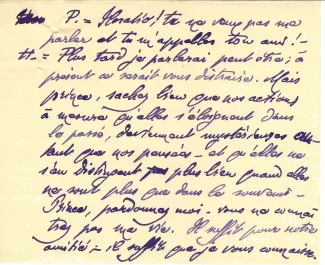 P. = Horatio! tu ne veux pas me
parler et tu m'appelles ton ami! -
H. = Plus tard je parlerai peut-être ; à
présent ce serait vous distraire. Mais
prince, sachez bien que nos actions
à mesure qu'elles s'éloignent dans
le passé, deviennent mystérieuses au-
tant que nos pensées - et qu'elles ne
s'en distinguent pas plus bien quand elles
ne sont plus que dans le souvenir -
Prince, pardonnez moi - vous ne connaî-
trez pas ma vie. Il suffit pour notre
amitié - il suffit que je vous connaisse.